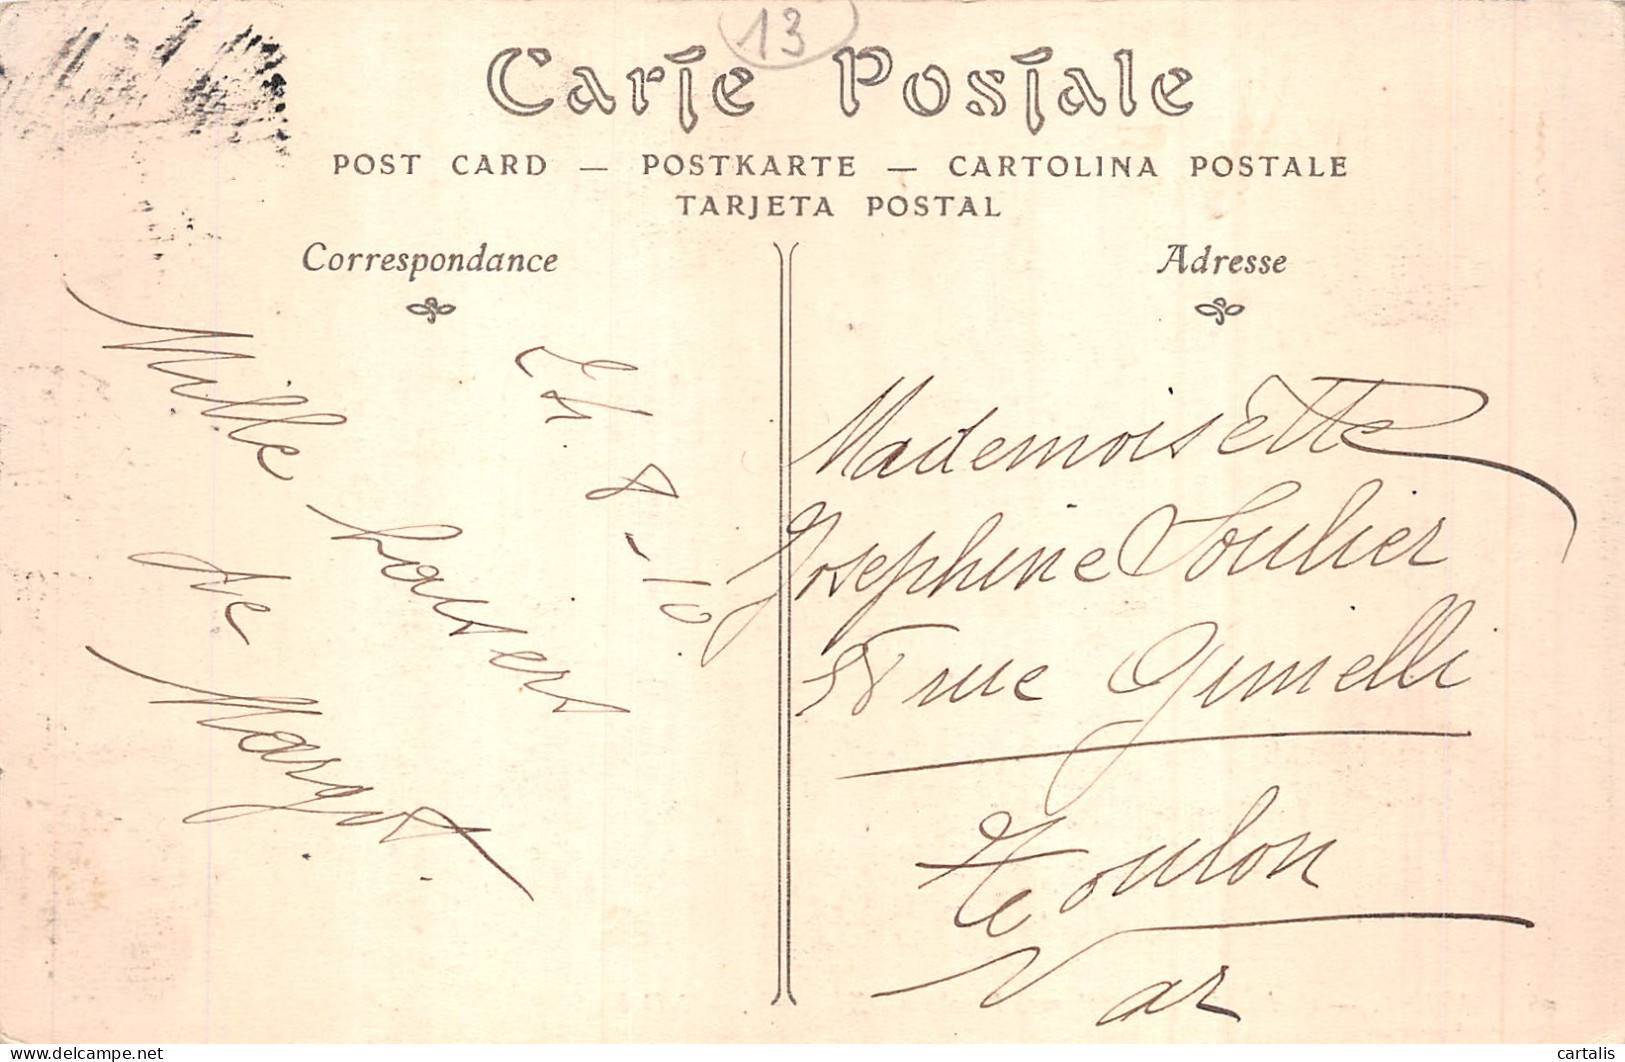 13
Carte Postale
POST CARD — POSTKARTE — CARTOLINA POSTALE
TARJETA POSTAL
Correspondance
Adresse
8-10
Mille baisers
de
Margot.
Mademoisette
Josephine Soulier
rue Gimelli
Toulon
Var
delcampe.net
cartalis